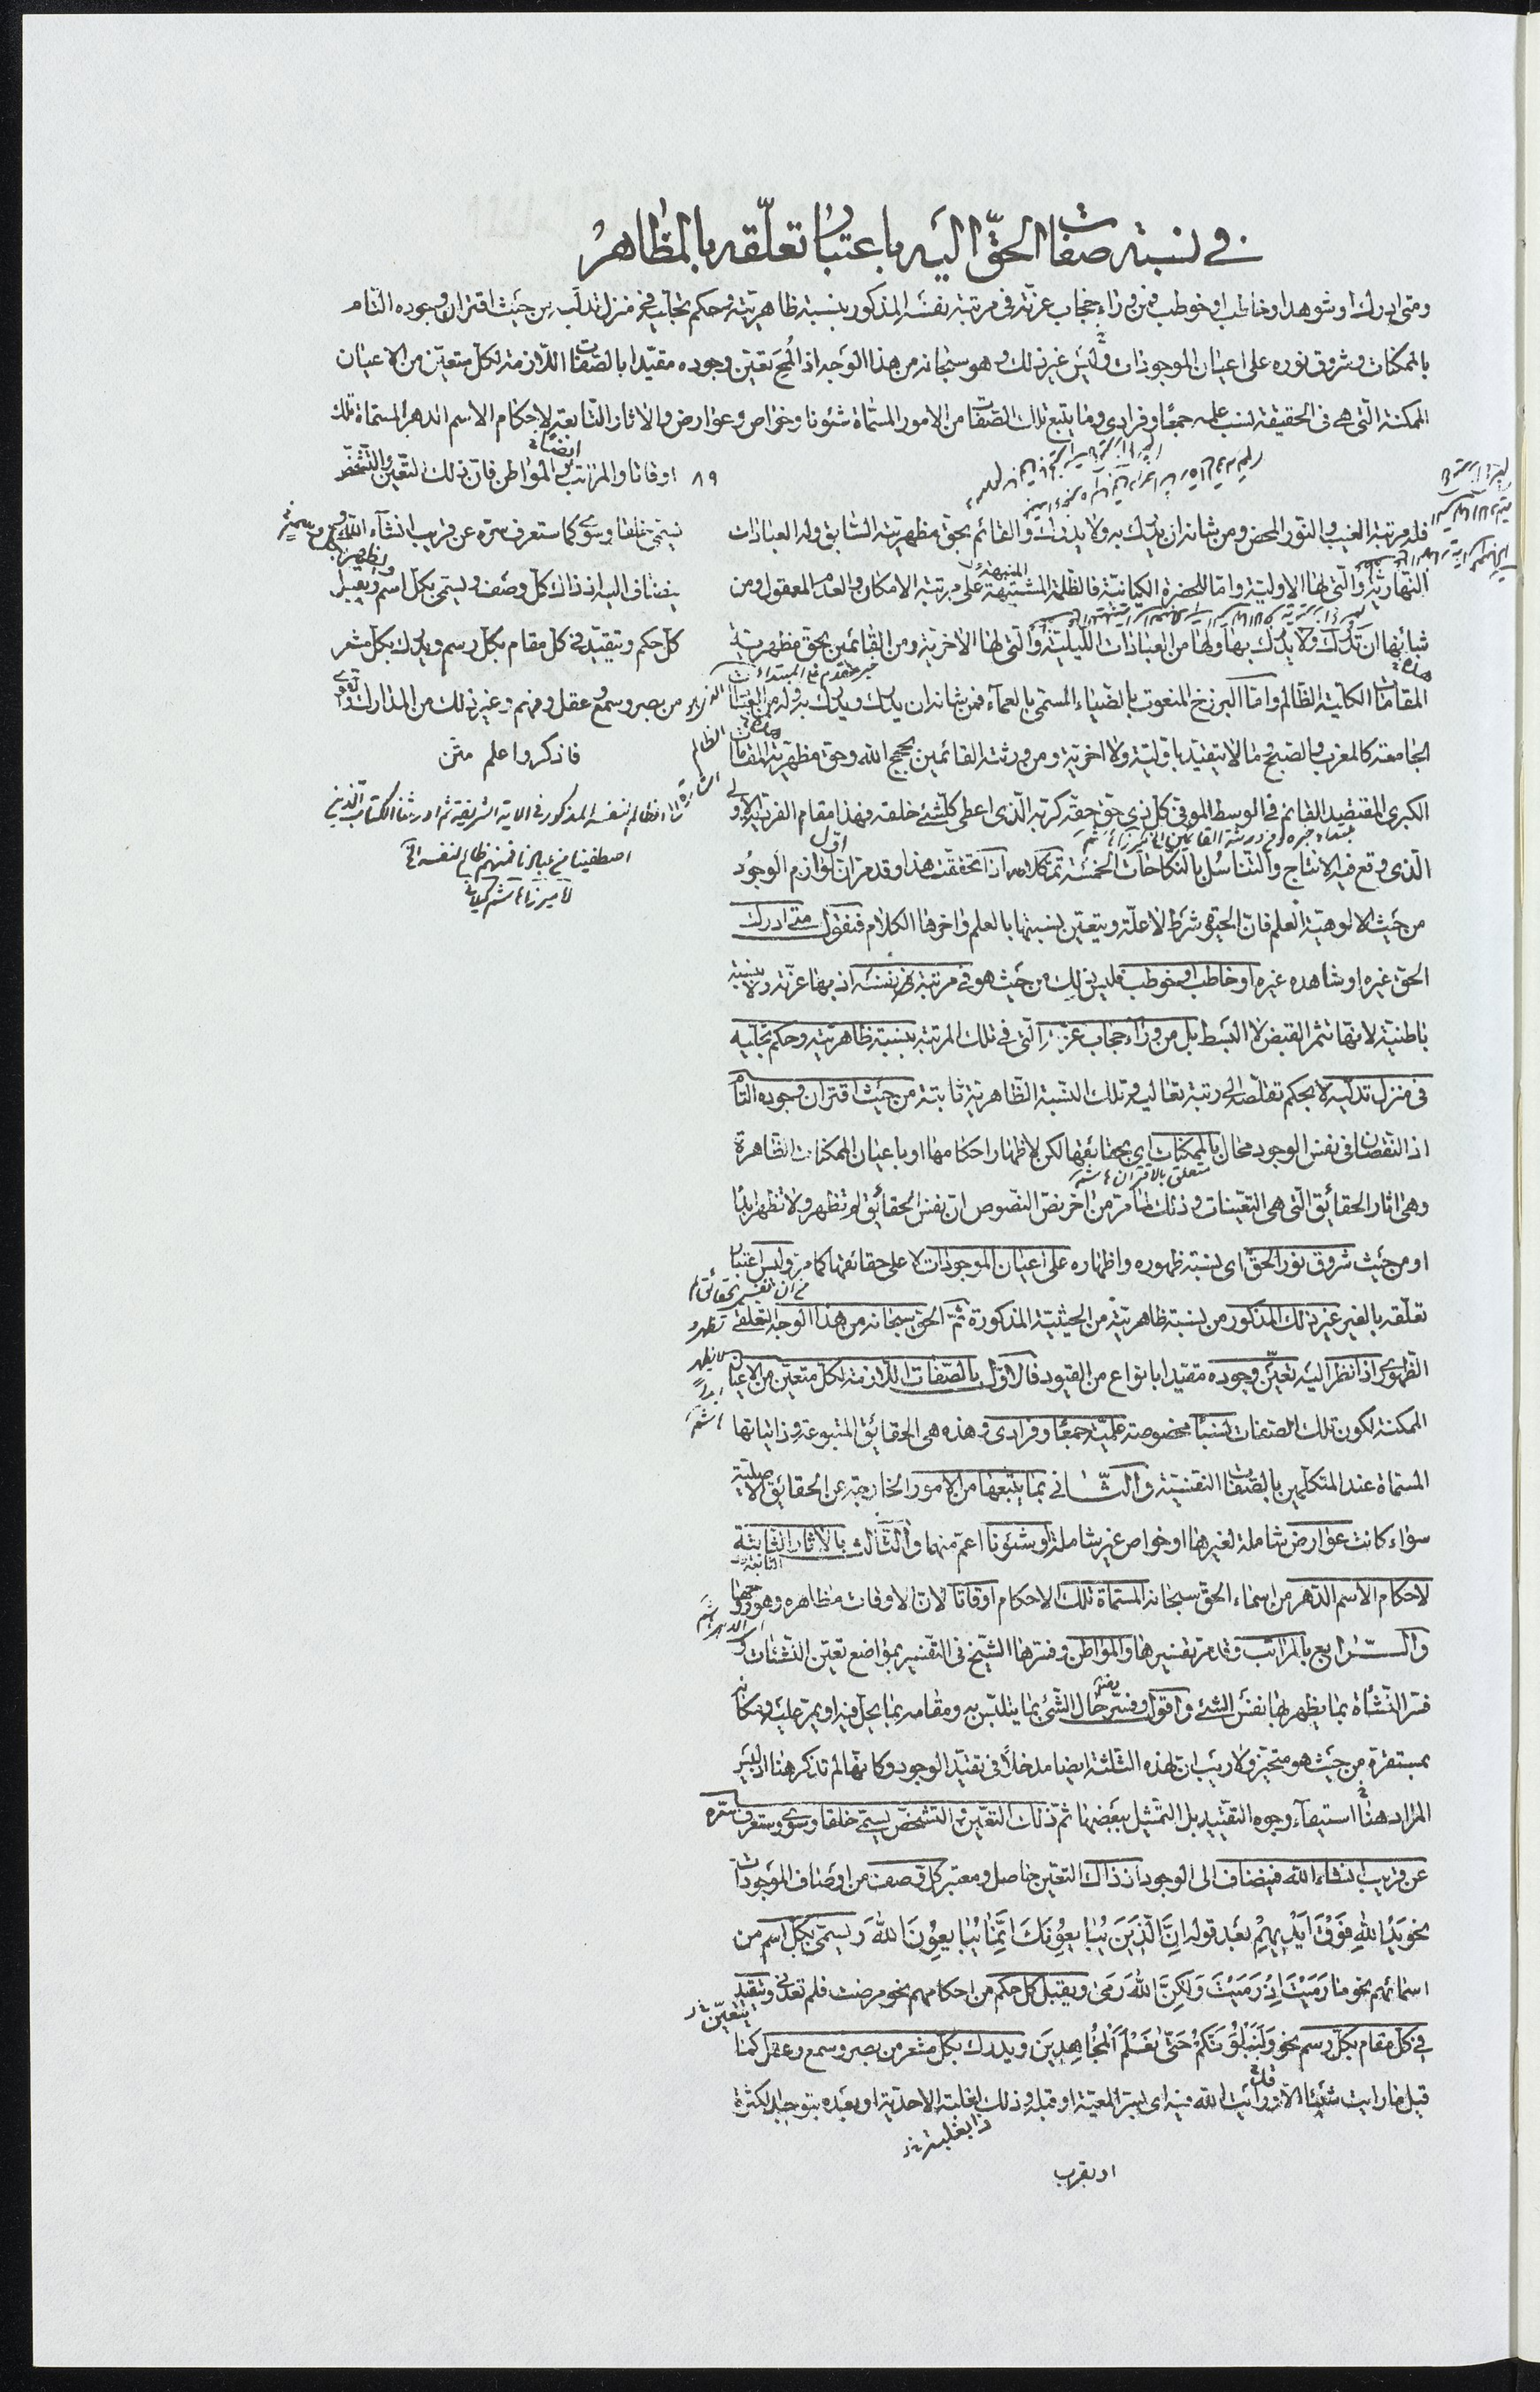 في نسبة صفات الحق اليه باعتبار تعلّقه بالمظاهر
ومتى ادرك او شوهد او خاطب او خوطب فمن وراء حجاب عزّته في مرتبة نفسه المذكورة بنسبة ظاهريّته وحكم تجلّيه في منزل تدلّيه من حيث اقتران وجوده التام
بالممكنات وشروق نوره على اعيان الموجودات وليس غير ذلك وهو سبحانه من هذا الوجه اذا لُمِحَ تعيّن وجوده مقيّدا بالصّفات اللّازمة لكل متعيّن من الاعيان
الممكنة الّتي هي في الحقيقة نسب علمه جمعًا وفرادى وما يتبع تلك الصّفات من الامور المسمّاة شئونا وخواص وعوارض والاثار التّابعة لاحكام الاسم الدهر المسمّاة تلك
٨٩ اوقاتا والمراتب ايضا والمواطن فانّ ذلك التّعيّن والتّشخّص
يسمّى خلقا وسوى كما ستعرف سرّه عن قريب انشاء الله
ينضاف اليه اذ ذاك كل وصف ويسمّى بكل اسم ويقبل
كلّ حكم ويتقيّد في كل مقام بكل رسم ويدرك بكل مشعر
من بصر وسمع وعقل وفهم وغير ذلك من المدارك والقوى
فاذكر واعلم متن
فله مرتبة الغيب والنّور المحض ومن شانه ان يدرك به ولا يدرك والقائم بحق مظهريّته السّابق وله العبادات
النّهاريّة والّتي لها الاوليّة وامّا للحضرة الكيانيّة فالظّلمة المشبّهة على مرتبة الامكان والعدم المعقول ومن
شانها ان تدرك ولا يدرك بها ولها من العبادات اللّيليّة والّتي لها الآخريّة ومن القائمين بحق مظهريّة
المقامات الكليّة الظّالم وامّا البرزخ المنعوت بالضياء المسمّى بالعماء فمن شانه ان يدرك ويدرك به وله من العبادات
الجامعة كالمغرب والصبح وما لا يتقيّد باوّليّة ولا اخريّة ومن ورثته القائمين بحجج الله وحق مظهريّة المقامات
الكبرى المقتصد القائم في الوسط الموفي كلّ ذي حقّ حقّه كربّه الّذي اعطى كلّ شئ خلقه فهذا مقام الفردية الاولى
الّذي وقع فيه الانتاج والتناسل بالنكاحات الخمسة تمّ كلامه اذا تحققت هذا وقد مرّ انّ اوّل لوازم الوجود
من حيث الالوهيّة العلم فانّ الحيوة شرط لا علّة ويتعيّن بنسبتها بالعلم واخرها الكلام فنقول متى ادرك
الحق غيره او شاهده غيره او خاطب او خوطب فليس ذلك من حيث هو في مرتبة نفسه اذ بها عزّته ولا بنسبة
باطنيّة لانّها تثمر القبض لا البسط بل من وراء حجاب عزّته الّتي في تلك المرتبة بنسبة ظاهريّته وحكم تجلّيه
في منزل تدلّيه لا بحكم تقلّصه الى رتبة تعاليه وتلك النّسبة الظّاهريّة ثابتة من حيث اقتران وجوده التّام
اذ النقصان في نفس الوجود محال بالممكنات اي بحقائقها لكن لاظهار احكامها او باعيان الممكنات الظّاهرة
متعلّق بالاقتران
وهي اثار الحقائق الّتي هي التعيّنات وذلك لما مرّ من اخر نصّ النّصوص انّ نفس الحقائق لم تظهر ولا تظهر ابدًا
او من حيث شروق نور الحق اي نسبة ظهوره واظهاره على اعيان الموجودات لا على حقائقها كما مرّ وليس اعتبار
تعلّقه بالغير غير ذلك المذكور من نسبة ظاهريّته من الحيثيّة المذكورة ثمّ الحق سبحانه من هذا الوجه التعلّقي
الظّهوري اذا نظر اليه تعيّن وجوده مقيّدا بانواع من القيود فالاوّل بالصّفات اللّازمة لكل متعيّن من الاعيان
الممكنة لكون تلك الصّفات نسبًا مخصوصة علميّة جمعًا وفرادى وهذه هي الحقائق المتبوعة وذاتياتها
المسمّاة عند المتكلّمين بالصّفات النفسيّة والثّاني بما يتبعها من الامور الخارجيّة عن الحقائق الاصليّة
سواء كانت عوارض شاملة لغيرها او خواص غير شاملة او شئونا اعمّ منهما والثّالث بالاثار الثّابتة
لاحكام الاسم الدّهر من اسماء الحق سبحانه المسمّاة تلك الاحكام اوقاتًا لانّ الاوقات مظاهره وهو روحها
والرّابع بالمراتب وقد مرّ تفسيرها والمواطن وفسّرها الشّيخ في التفسير بمواضع تعيّن النّشئات و
فسّر النّشأة بما يظهر بها نفس الشئ واقول وفسّر حال الشّئ بما يتلبّس به ومقامه بما يحلّ فيه او يمرّ عليه ومكانه
بمستقرّه من حيث هو متحيّز ولا ريب انّ لهذه الثّلثة ايضا مدخلًا في تقيّد الوجود وكانّها لم تذكر هنا اذ ليس
المراد هنا استيفاء وجوه التقييد بل التّمثيل ببعضها ثمّ ذلك التعيّن والتشخّص يسمّى خلقا وسوى وستعرف سرّه
عن قريب انشاء الله فينضاف الى الوجود اذ ذاك التعيّن حاصل ومعتبر كلّ وصف من اوصاف الموجودات
نحو يَدُ اللهِ فَوْقَ اَيْدِيهِمْ بعد قوله اِنَّ الَّذِينَ يُبَايِعُونَكَ اِنَّمَا يُبَايِعُونَ اللهَ ويسمّى بكل اسم من
اسمائهم نحو مَا رَمَيْتَ اِذْ رَمَيْتَ وَلٰكِنَّ اللهَ رَمٰى ويقبل كل حكم من احكامهم نحو مرضت فلم تعدني ويتقيّد
في كلّ مقام بكلّ رسم نحو وَلَنَبْلُوَنَّكُمْ حَتّٰى نَعْلَمَ الْمُجَاهِدِينَ ويدرك بكلّ مشعر من بصر وسمع وعقل كما
قيل ما رايت شيئا الّا ورايت الله فيه اي بسرّ المعيّة او قبله وذلك لغلبة الاحديّة او بعده بتوجيه الكثرة
او بقرب